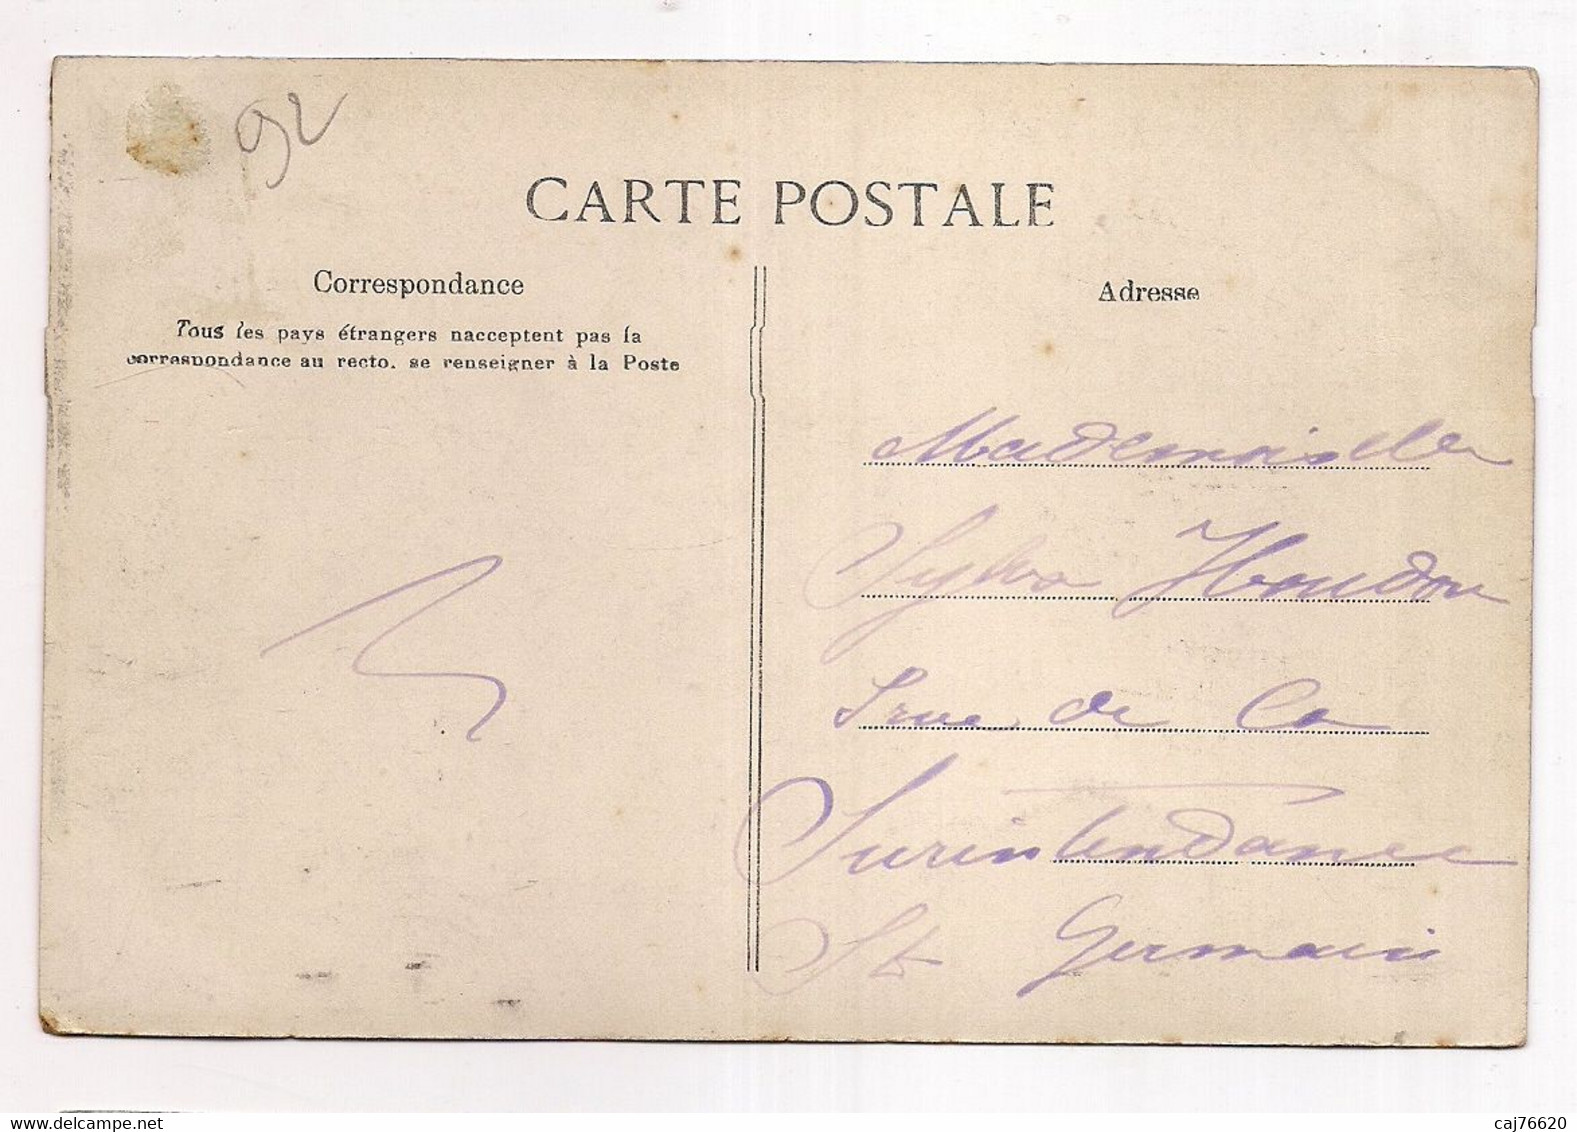 92
CARTE POSTALE
Correspondance
Tous les pays étrangers nacceptent pas la
correspondance au recto. se renseigner à la Poste
Adresse
Mademoiselle
Sylva Houdou
rue de la
Surintendance
St Germain
caj76620